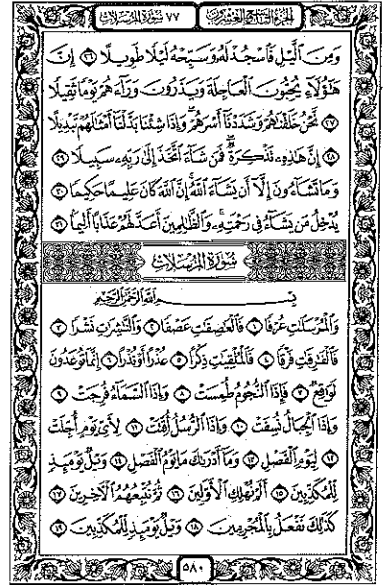 الجزء التاسع والعشرون
٧٧ سورة المرسلات
وَمِنَ ٱلَّيْلِ فَٱسْجُدْ لَهُۥ وَسَبِّحْهُ لَيْلًا طَوِيلًا ٢٦ إِنَّ
هَٰٓؤُلَآءِ يُحِبُّونَ ٱلْعَاجِلَةَ وَيَذَرُونَ وَرَآءَهُمْ يَوْمًا ثَقِيلًا
٢٧ نَّحْنُ خَلَقْنَٰهُمْ وَشَدَدْنَآ أَسْرَهُمْ وَإِذَا شِئْنَا بَدَّلْنَآ أَمْثَٰلَهُمْ تَبْدِيلًا
٢٨ إِنَّ هَٰذِهِۦ تَذْكِرَةٌ فَمَن شَآءَ ٱتَّخَذَ إِلَىٰ رَبِّهِۦ سَبِيلًا ٢٩
وَمَا تَشَآءُونَ إِلَّآ أَن يَشَآءَ ٱللَّهُ إِنَّ ٱللَّهَ كَانَ عَلِيمًا حَكِيمًا ٣٠
يُدْخِلُ مَن يَشَآءُ فِى رَحْمَتِهِۦ وَٱلظَّٰلِمِينَ أَعَدَّ لَهُمْ عَذَابًا أَلِيمًا ٣١
سورة المرسلات
بِسْمِ ٱللَّهِ ٱلرَّحْمَٰنِ ٱلرَّحِيمِ
وَٱلْمُرْسَلَٰتِ عُرْفًا ١ فَٱلْعَٰصِفَٰتِ عَصْفًا ٢ وَٱلنَّٰشِرَٰتِ نَشْرًا ٣
فَٱلْفَٰرِقَٰتِ فَرْقًا ٤ فَٱلْمُلْقِيَٰتِ ذِكْرًا ٥ عُذْرًا أَوْ نُذْرًا ٦ إِنَّمَا تُوعَدُونَ
لَوَٰقِعٌ ٧ فَإِذَا ٱلنُّجُومُ طُمِسَتْ ٨ وَإِذَا ٱلسَّمَآءُ فُرِجَتْ ٩
وَإِذَا ٱلْجِبَالُ نُسِفَتْ ١٠ وَإِذَا ٱلرُّسُلُ أُقِّتَتْ ١١ لِأَىِّ يَوْمٍ أُجِّلَتْ
١٢ لِيَوْمِ ٱلْفَصْلِ ١٣ وَمَآ أَدْرَىٰكَ مَا يَوْمُ ٱلْفَصْلِ ١٤ وَيْلٌ يَوْمَئِذٍ
لِّلْمُكَذِّبِينَ ١٥ أَلَمْ نُهْلِكِ ٱلْأَوَّلِينَ ١٦ ثُمَّ نُتْبِعُهُمُ ٱلْءَاخِرِينَ ١٧
كَذَٰلِكَ نَفْعَلُ بِٱلْمُجْرِمِينَ ١٨ وَيْلٌ يَوْمَئِذٍ لِّلْمُكَذِّبِينَ ١٩
٥٨٠